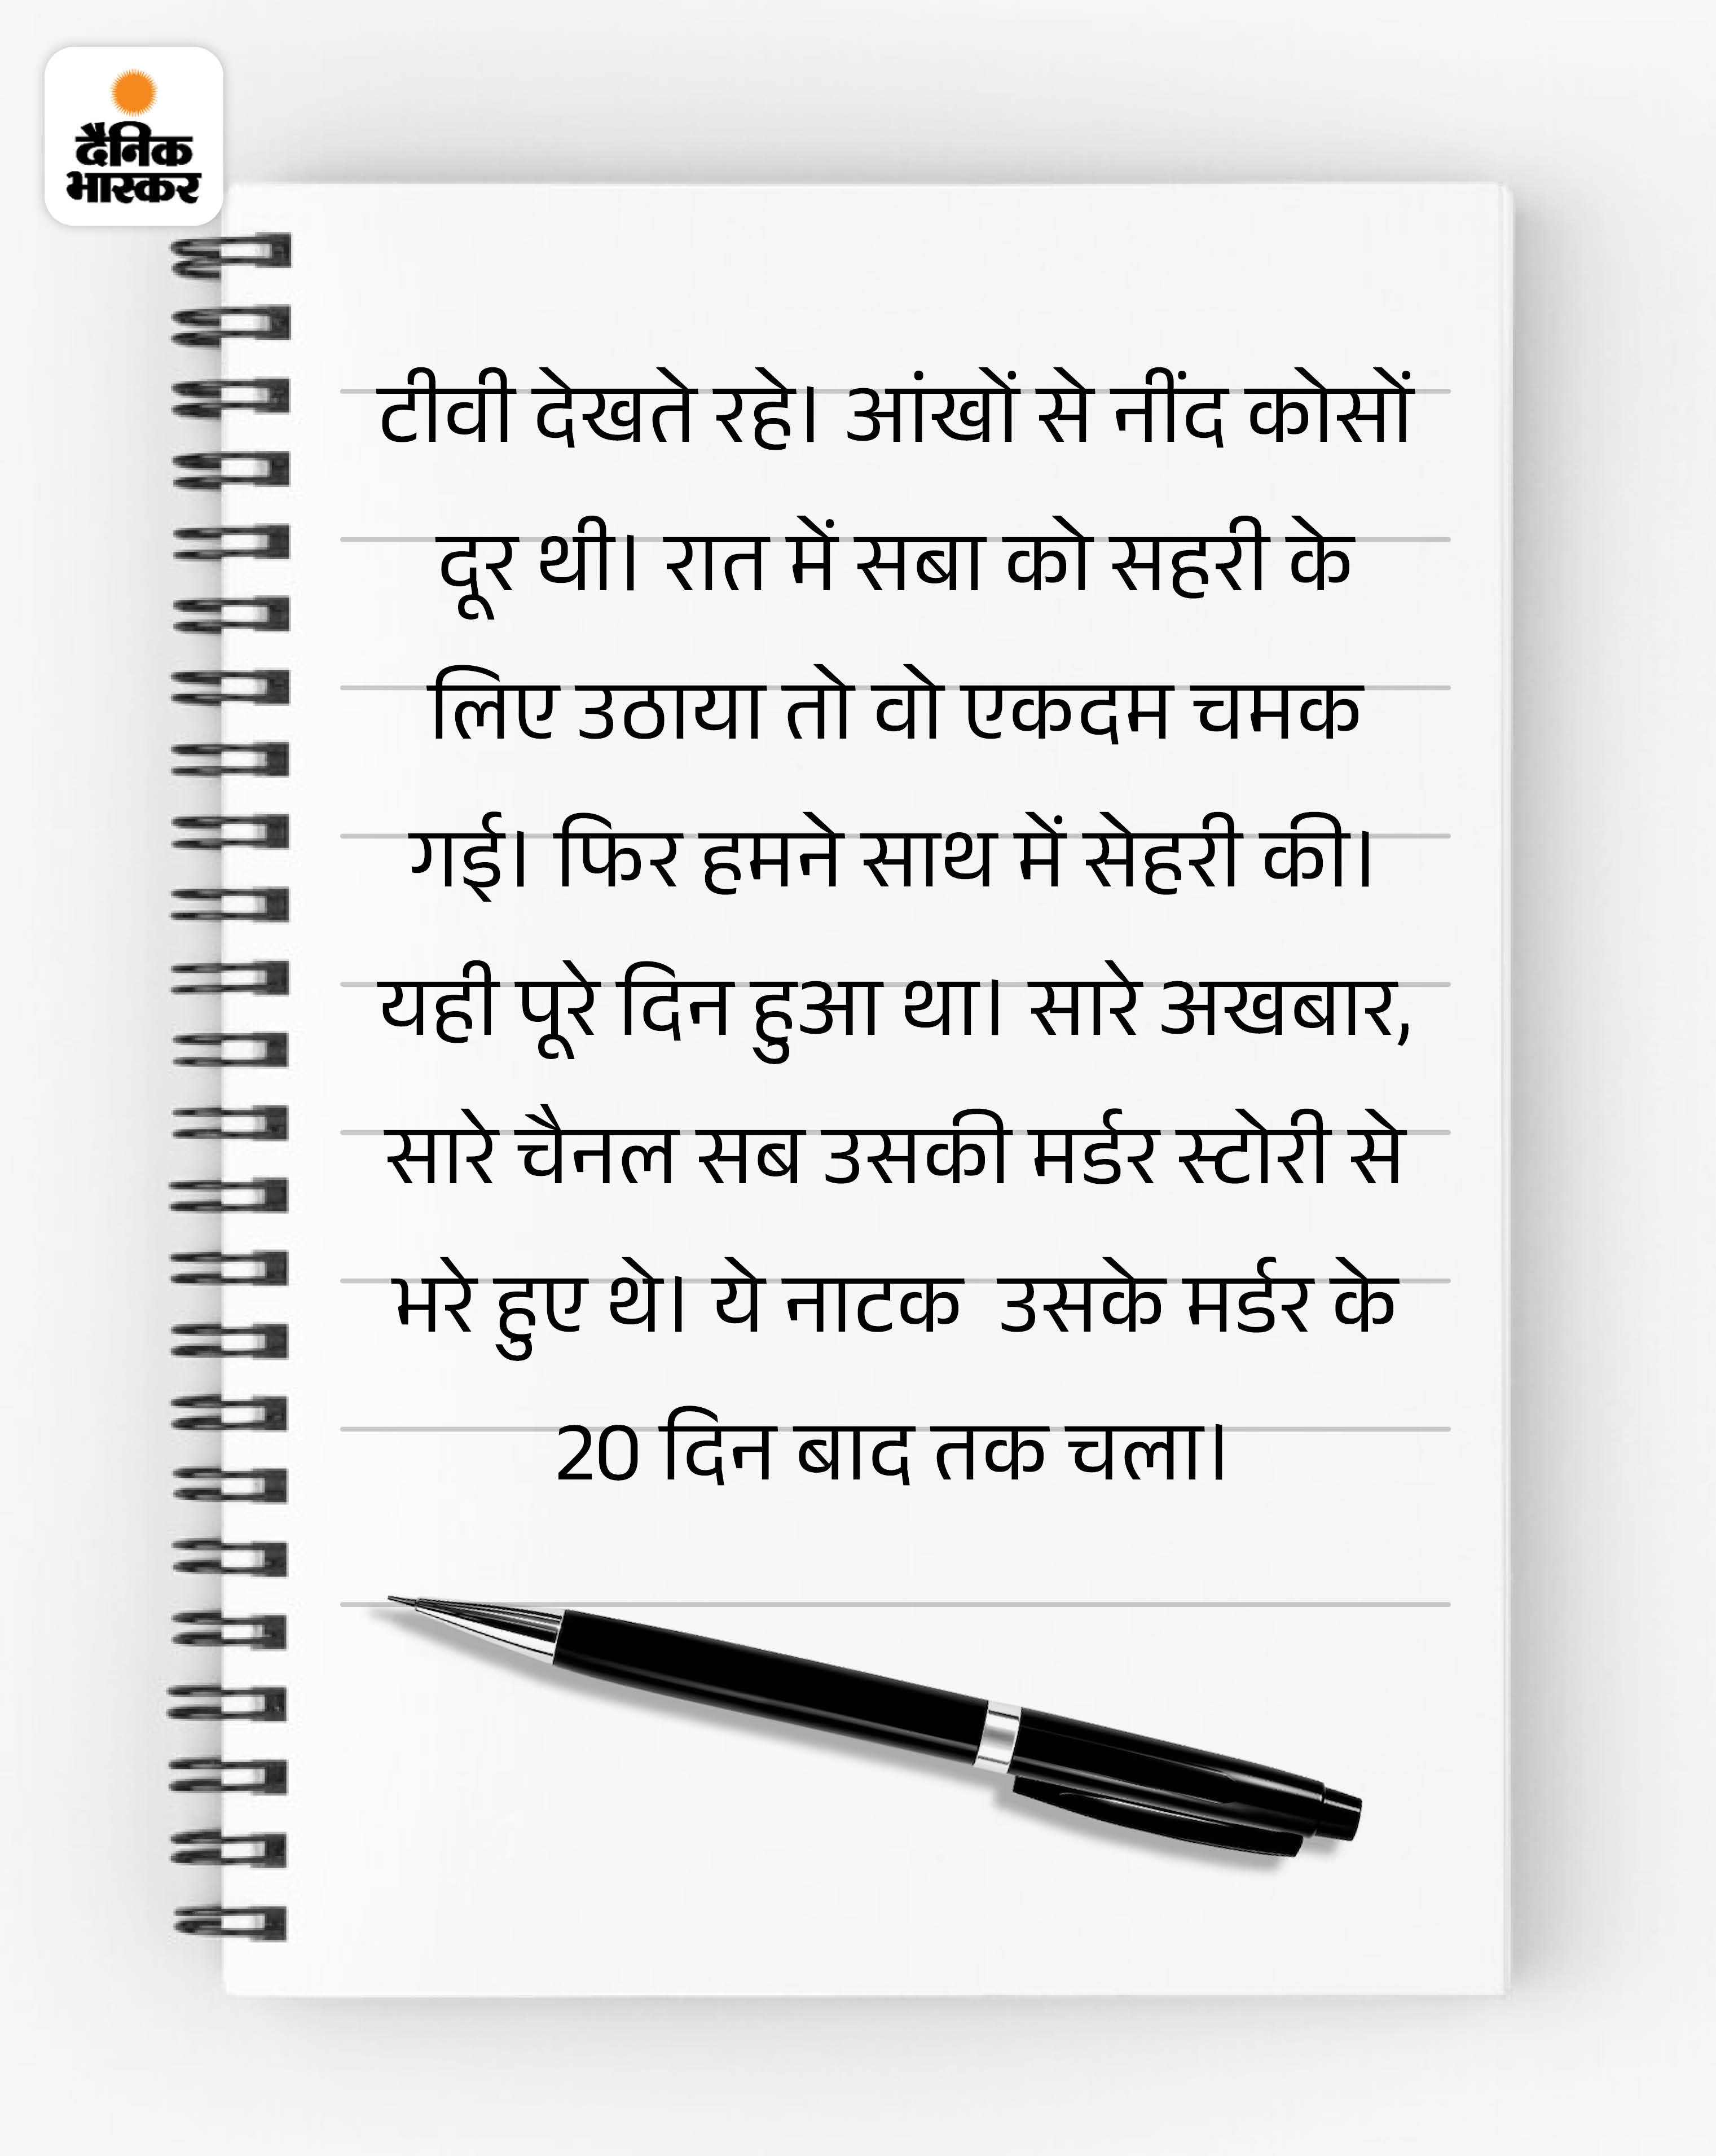 दैनिक
भास्कर
टीवी देखते रहे। आंखों से नींद कोसों
दूर थी। रात में सबा को सहरी के
लिए उठाया तो वो एकदम चमक
गई। फिर हमने साथ में सेहरी की।
यही पूरे दिन हुआ था। सारे अखबार,
सारे चैनल सब उसकी मर्डर स्टोरी से
भरे हुए थे। ये नाटक  उसके मर्डर के
20 दिन बाद तक चला।